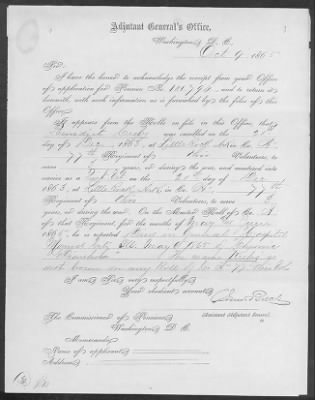 Adjutant General's Office,
Washington, D. C.,
Oct 9, 1865
Sir:
I have the honor to acknowledge the receipt from your Office
of application for Pension No. 101794, and to return it
herewith, with such information as is furnished by the files of this
Office.
It appears from the Rolls on file in this Office, that
was enrolled on the
day of Dec, 1863, at Little Rock Ark in Co. K,
77th Regiment of Ohio Volunteers, to serve
years, or during the war, and mustered into
service as a on the day of
1863, at Little Rock, Ark, in Co. K, 77th
Regiment of Ohio Volunteers, to serve 3
years, or during the war. On the Muster Roll of Co. K
of that Regiment, for the months of May
1865, he is reported Died in General Hospital
May 1865 of Chronic
Diarrhoea The name
not borne on any Rolls of Co K 77 Ohio Vols
I am, Sir, very respectfully,
Your obedient servant,
Samuel Breck
Assistant Adjutant General
The Commissioner of Pensions,
Washington, D. C.
Memoranda:
Name of applicant
Address